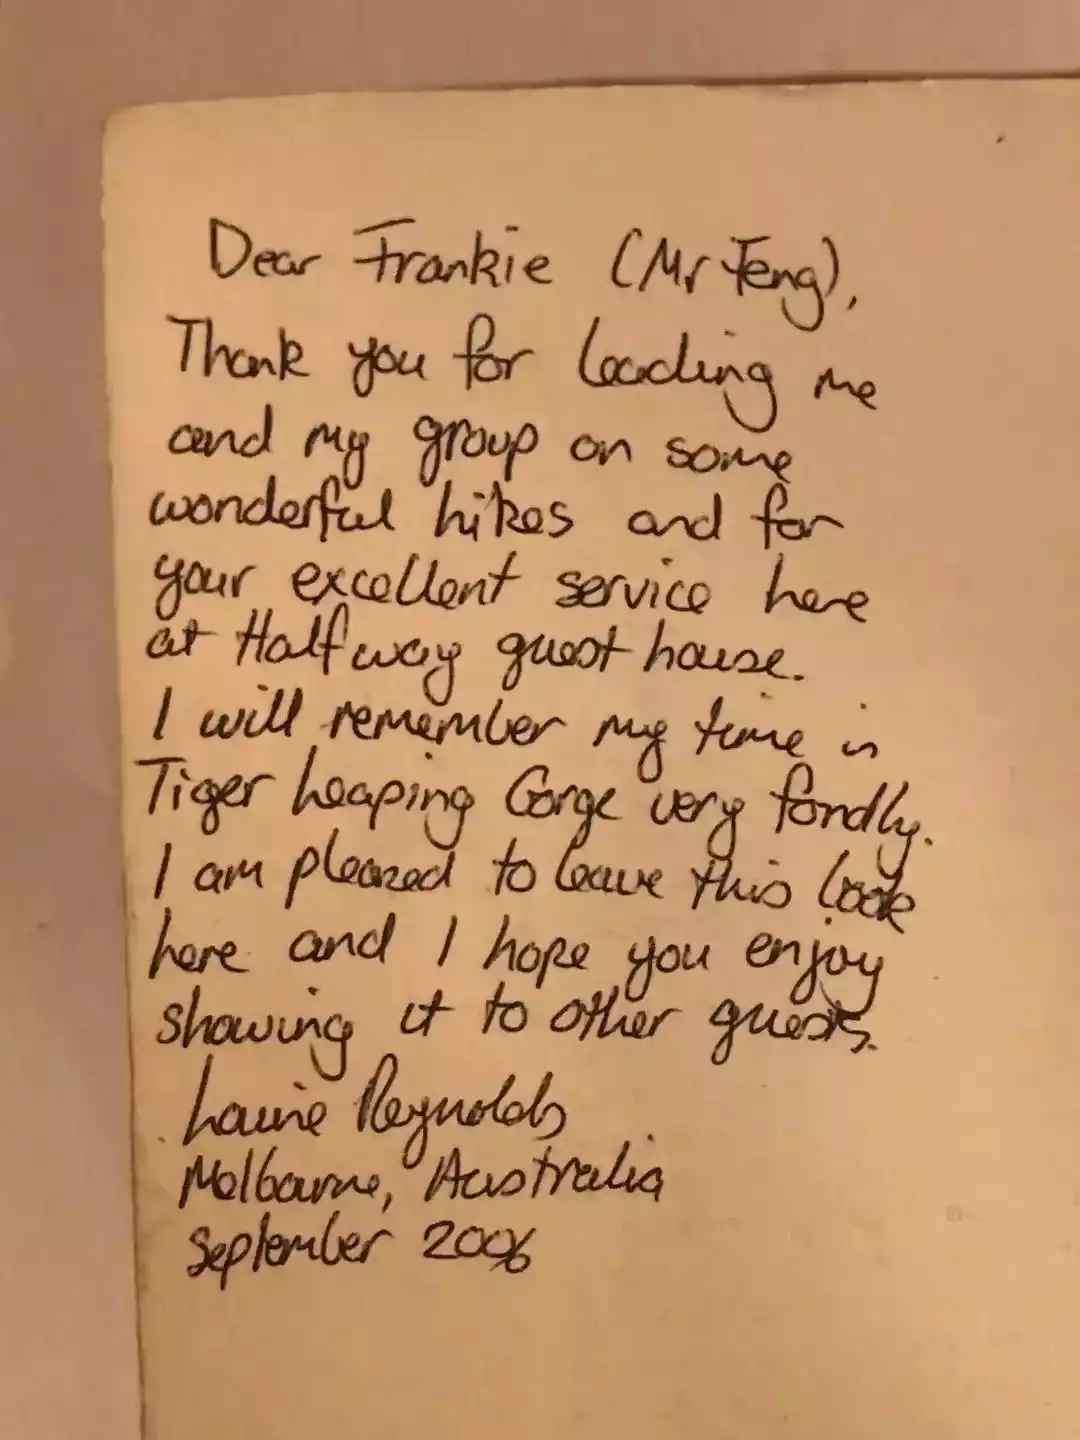 Dear Frankie (Mr Feng),
Thank you for leading me
and my group on some
wonderful hikes and for
your excellent service here
at Halfway guest house.
I will remember my time in
Tiger Leaping Gorge very fondly.
I am pleased to leave this book
here and I hope you enjoy
showing it to other guests.
Laurie Reynolds
Melbourne, Australia
September 2006